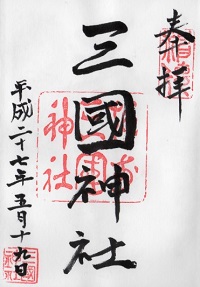 奉拝
三國神社
平成二十七年五月十九日